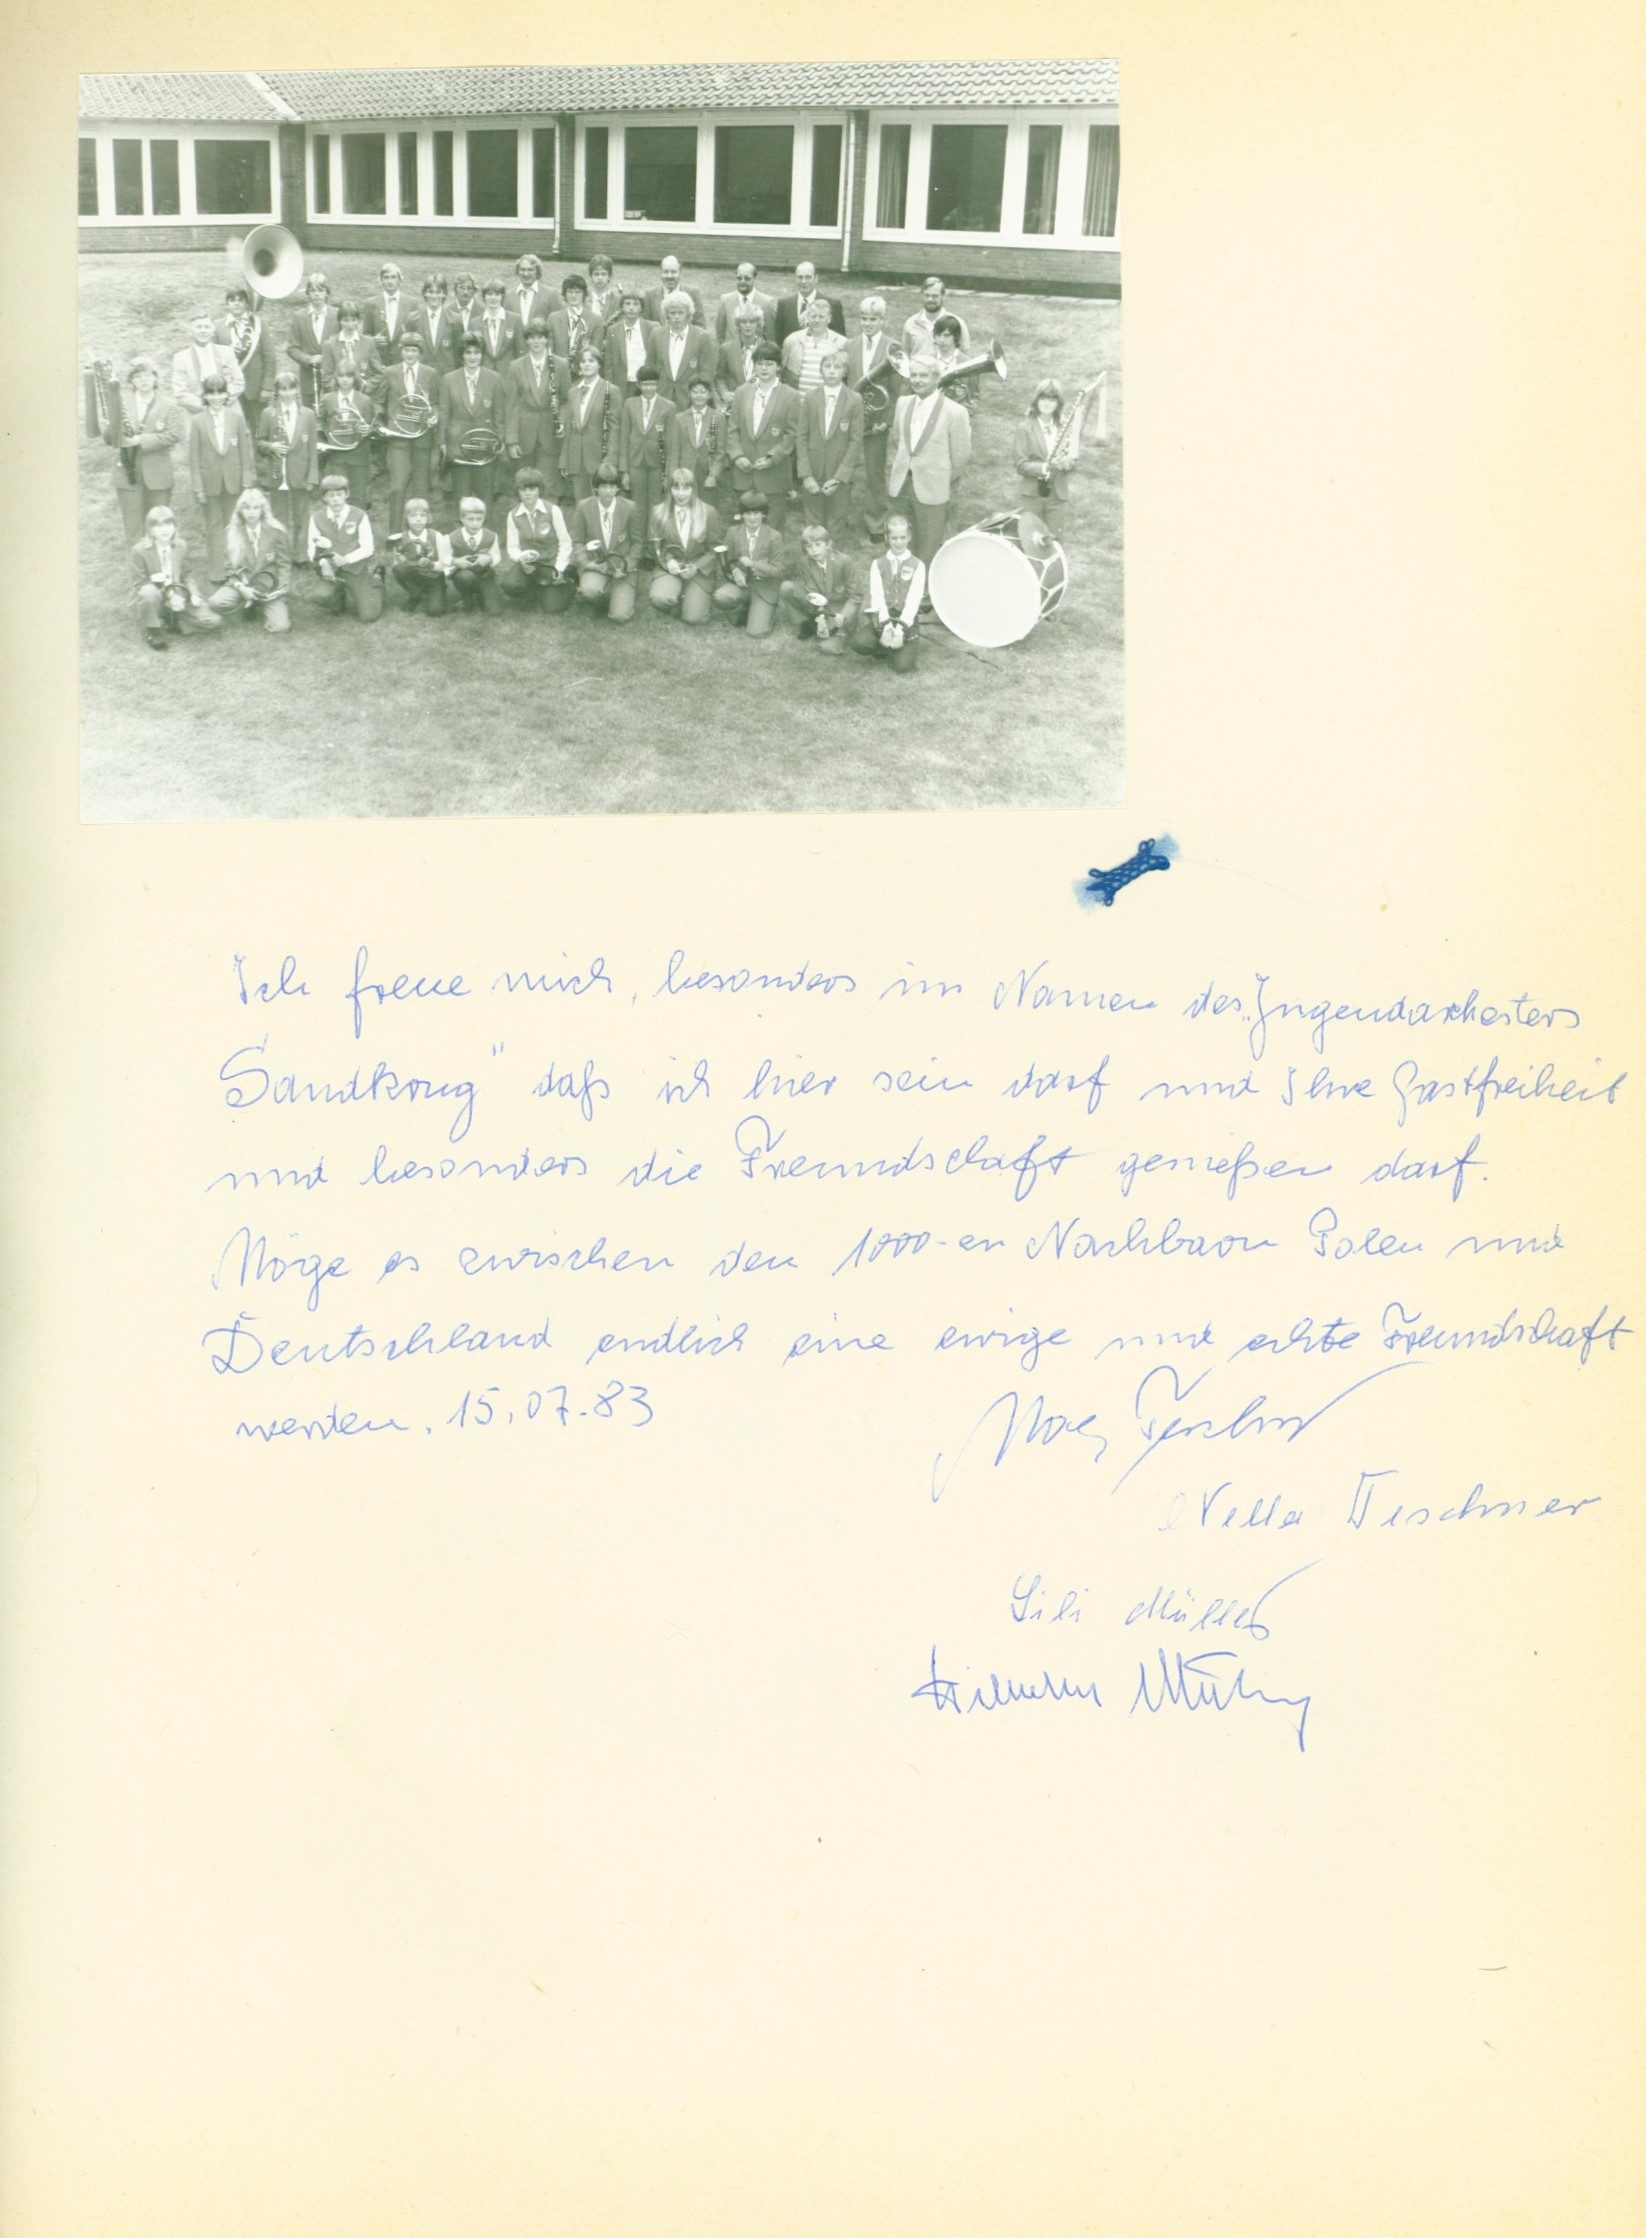 Ich freue mich, besonders im Namen des „Jugendorchesters
Sandkrug" daß ich hier sein darf und Ihre Gastfreiheit
und besonders die Freundschaft genießen darf.
Möge es zwischen den 1000-en Nachbarn Polen und
Deutschland endlich eine ewige und echte Freundschaft
werden. 15.07.83
Nella Teschner
Lili Müller